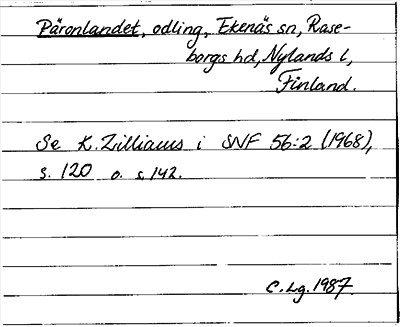 Päronlandet, odling, Ekenäs sn, Rase-
borgs hd, Nylands l,
Finland.
Se K. Zilliacus i SNF 56:2 (1968),
s. 120 o. s. 142.
C. Lg. 1987